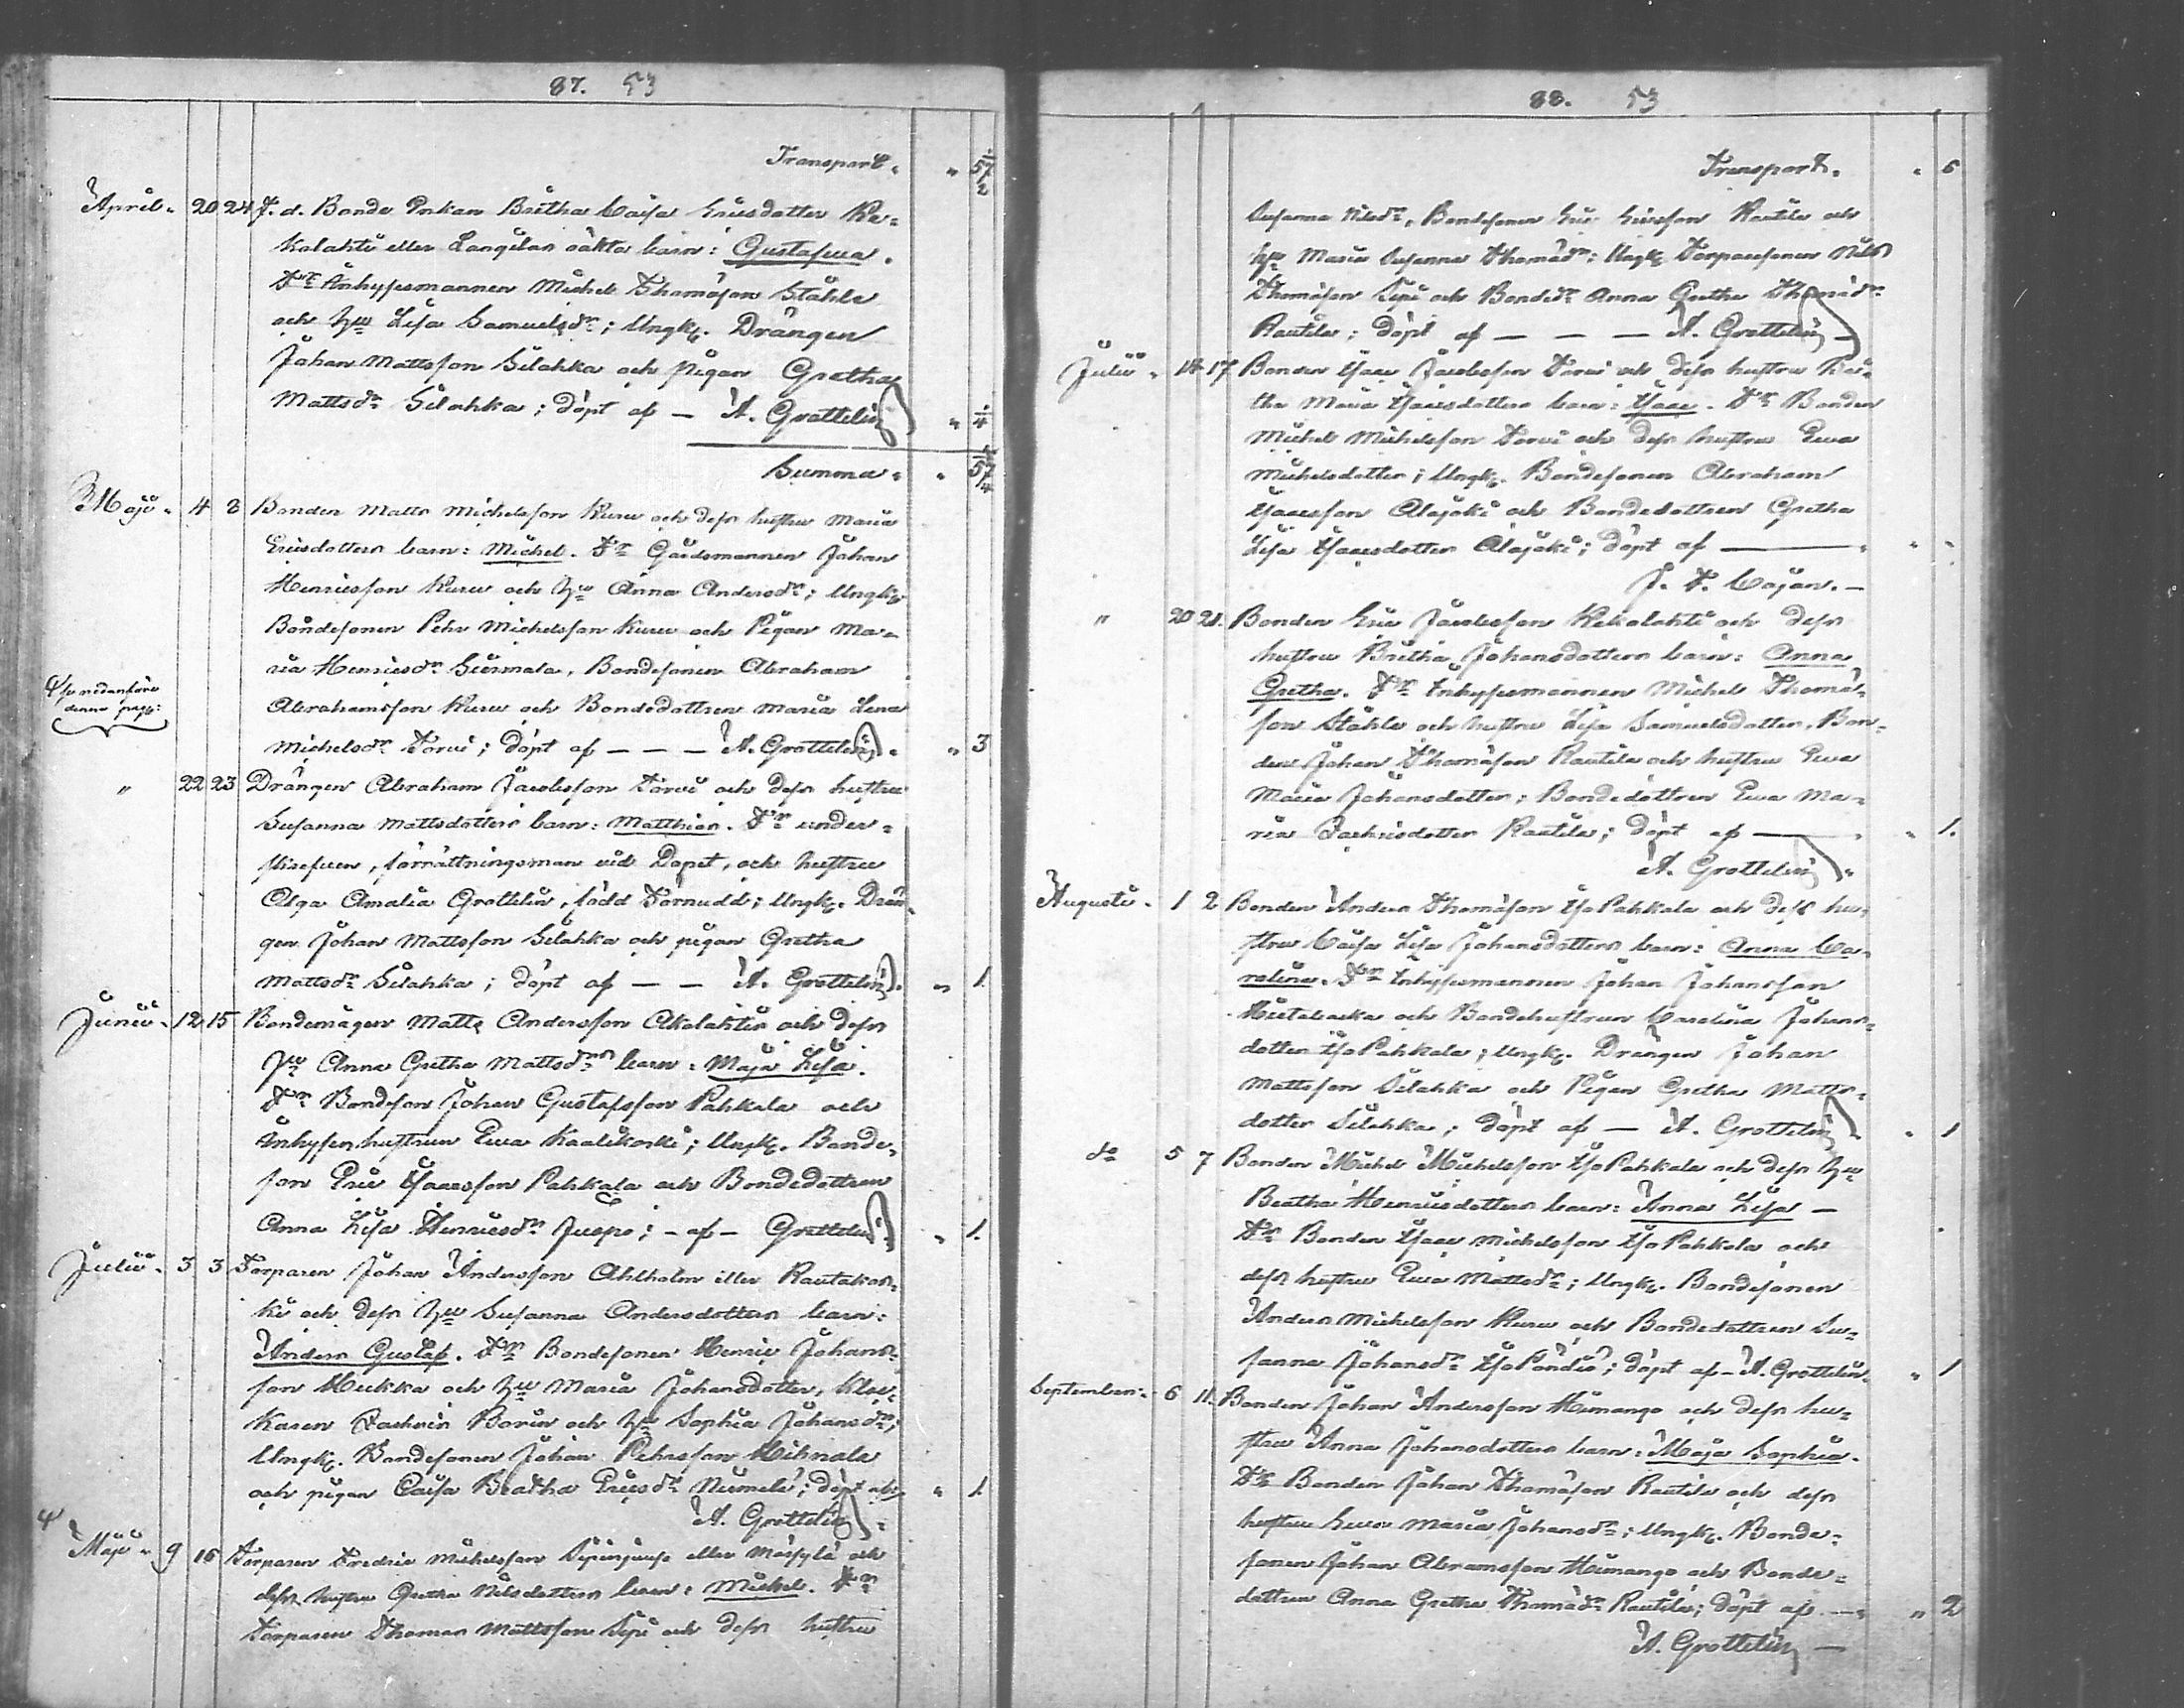 87. 53
Transport. " 57/2
April. 20 24 F. d. Bonde Enkan Britha Caisa Ericsdotter Ke-
kolahti eller Langilas oäkta barn: Gustafwa.
Fr Inhysesmannen Michel Thomasson Ståhle
och hu Lisa Samuelsdr; Ungk. Drängen
Johan Mattsson Silahka och Pigan Gretha
Mattsdr Silahka; döpt af — A. Grottelin " 1/4
Summa. " 57/4
Maji. 4 8 Bonden Matts Michelsson Kuru och dess hustru Maria
Ericsdotters barn: Michel. Fr Gårdsmannen Johan
Henricsson Kuru och hu Anna Andersdr; Ungk.
Bondesonen Pehr Michelsson Kuru och Pigan Ma-
ria Henricsdr Siirmala, Bondesonen Abraham
se nedanföre
denna pag:
Abrahamsson Kuru och Bondedottren Maria Lena
Michelsdr Torvi; döpt af — — — A. Grottelin. " 3
" 22 23 Drängen Abraham Jacobsson Torvi och dess hustru
Susanna Mattsdotters barn: Matthias. Fr under-
skrefven, förrättningsman vid Dopet, och hustru
Olga Amalia Grottelin, född Törnudd; Ungk. Drän-
gen Johan Mattsson Silahka och pigan Gretha
Mattsdr Silahka; döpt af — — A. Grottelin. " 1
Junii. 12 15 Bondemågen Matts Andersson Akolahtis och dess
hu Anna Gretha Mattsdrs barn: Maja Lisa.
Fr Bondeson Johan Gustafsson Pahkala och
Inhyseshustrun Ewa Kaalikoski; Ungk. Bonde-
son Eric Isaacsson Pahkala och Bondedottren
Anna Lisa Henricsdr Juspo; — af — Grottelin " 1.
Julii. 3 3 Torparen Johan Andersson Ahlholm eller Rautakos-
ki och dess hu Susanna Andersdotters barn:
Anders Gustaf. Fr Bondesonen Henric Johans-
son Hukka och hu Maria Johansdotter, Kloc-
karen Zachris Borin och hu Sophia Johansdr;
Ungk. Bondesonen Johan Pehrsson Hihnala
och pigan Caisa Beatha Ericsdr Niemelä; döpt af " 1
A. Grottelin.
Maji. 9 16 Torparen Fredric Michelsson eller och
dess hustru Gretha Nilsdotters barn: Michel. Fr
Torparen Thomas Mattsson Sipi och dess hustru
88. 53
Transport. " 6
Susanna Nilsdr, Bondesonen Eric Ericsson Rautila och
hu Maria Susanna Thomadr; Ungk. Torparesonen Nils
Thomasson Sipi och Bondedr Anna Gretha Thomadr
Rautila; döpt af — — — A. Grottelin —
Julii. 14 17 Bonden Isaac Jacobsson Torvi och dess hustru Bri-
tha Maria Isaacsdotters barn: Isaac. Fr Bonden
Michel Michelsson Torvi och dess hustru Ewa
Michelsdotter; Ungk. Bondesonen Abraham
Isaacsson Alajoki och Bondedottren Gretha
Lisa Isaacsdotter Alajoki; döpt af —
J. F. Cajan. —
" 20 21. Bonden Eric Jacobsson Kekolahti och dess
hustru Britha Johansdotters barn: Anna
Gretha. Fr Inhysesmannen Michel Thomas-
son Ståhle och hustru Lisa Samuelsdotter, Bon-
den Johan Thomasson Rautila och hustru Ewa
Maria Johansdotter; Bondedottren Ewa Ma-
ria Zachrisdotter Rautila; döpt af — " 1.
A. Grottelin.
Augusti. 1 2 Bonden Anders Thomasson Iso Pahkala och dess hu-
stru Caisa Lisa Johansdotters barn: Anna Ca-
rolina. Fr Inhysesmannen Johan Johansson
Hietabacka och Bondehustrun Carolina Johans-
dotter Iso Pahkala; Ungk. Drängen Johan
Mattsson Silahka och Pigan Gretha Matts-
dotter Silahka; döpt af — A. Grottelin. " 1
do 5 7 Bonden Michel Michelsson Iso Pahkala och dess hu
Beatha Henricsdotters barn: Anna Lisa —
Fr Bonden Isaac Michelsson Iso Pahkala och
dess hustru Ewa Mattsdr; Ungk. Bondesonen
Anders Michelsson Kuru och Bondedottren Su-
sanna Johansdr Iso Pöndiö; döpt af — A. Grottelin. " 1
September. 6 11. Bonden Johan Andersson Himango och dess hu-
stru Anna Johansdotters barn: Maja Sophia.
Fr Bonden Johan Thomasson Rautila och dess
hustru Ewa Maria Johansdr; Ungk. Bonde-
sonen Johan Abramsson Himango och Bonde-
dottren Anna Gretha Thomadr Rautila; döpt af — " 2
A. Grottelin —